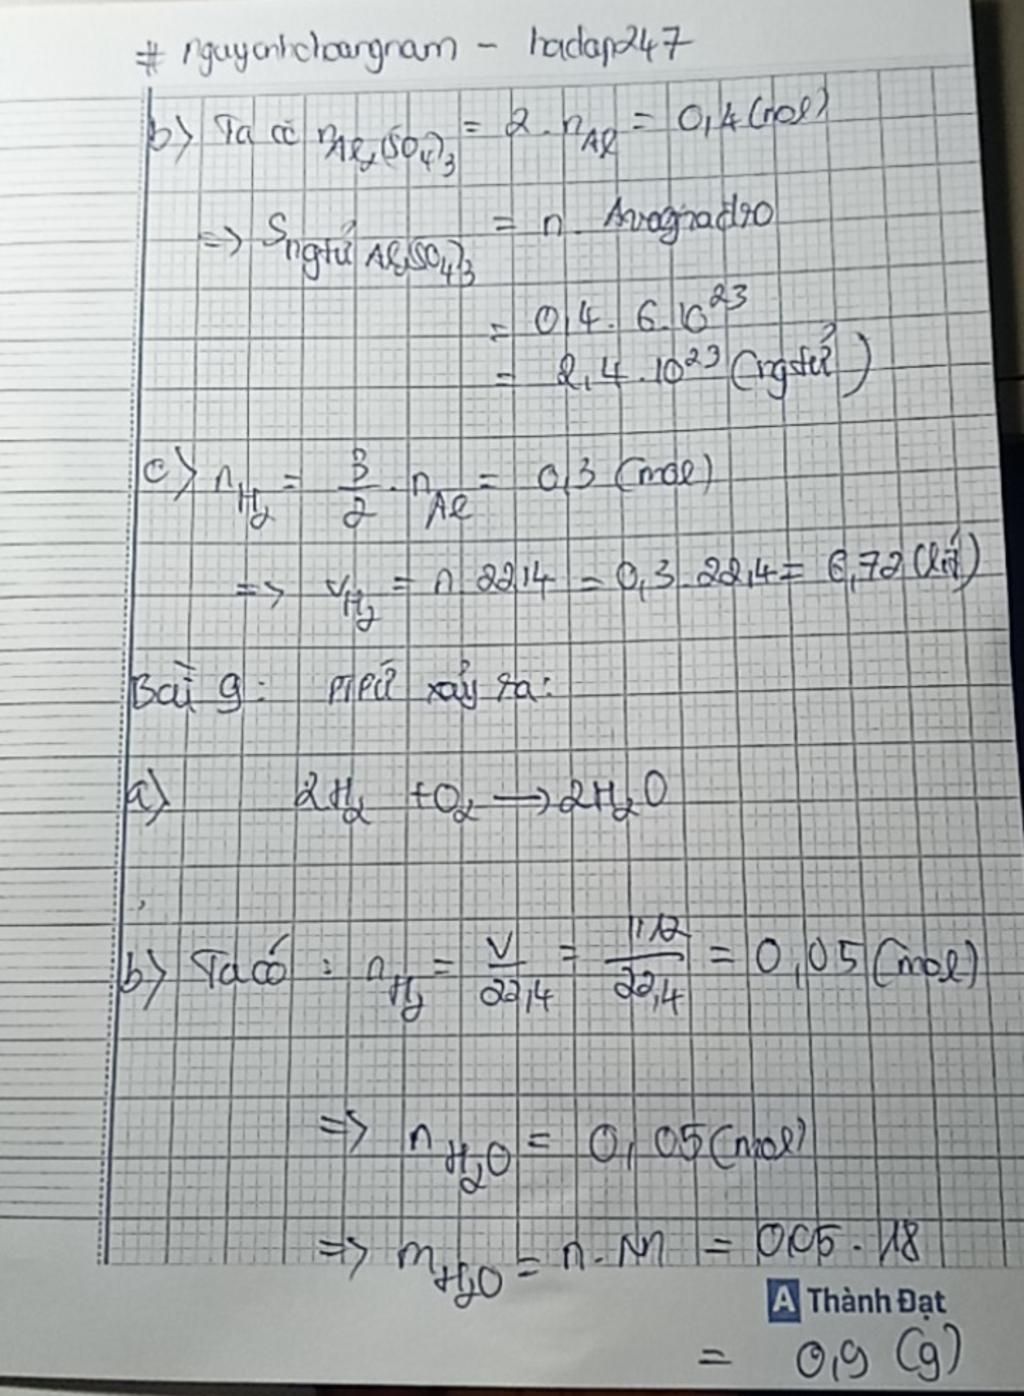 # nguyenhhoangnam - hoidap247
b) Ta có nAl2(SO4)3 = 2 . nAl = 0,4 (mol)
=> Sngtử Al2(SO4)3 = n . Avogradro
= 0,4 . 6.10^23
= 2,4 . 10^23 (ngtử)
c) nH2 = 3/2 . nAl = 0,3 (mol)
=> VH2 = n . 22,4 = 0,3 . 22,4 = 6,72 (lít)
Bài 9: PTPƯ xảy ra:
a) 2H2 + O2 → 2H2O
b) Ta có : nH2 = V/22,4 = 1,12/22,4 = 0,05 (mol)
=> nH2O = 0,05 (mol)
=> mH2O = n . M = 0,05 . 18
A Thành Đạt
= 0,9 (g)